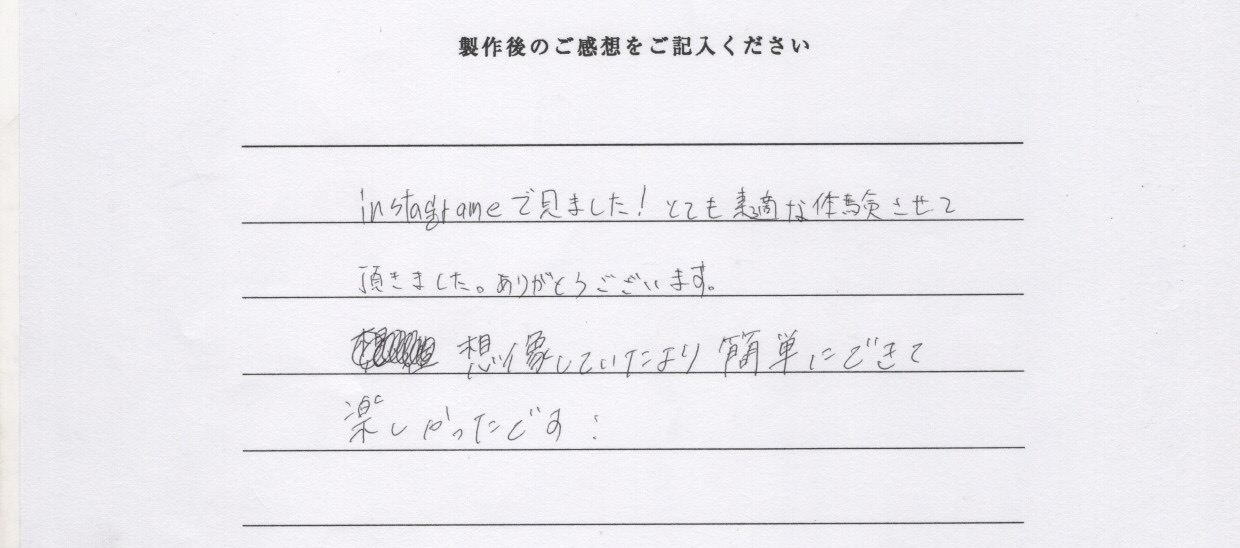 製作後のご感想をご記入ください
instagrameで見ました！とても素適な体験させて
頂きました。ありがとうございます。
想像していたより簡単にできて
楽しかったです：